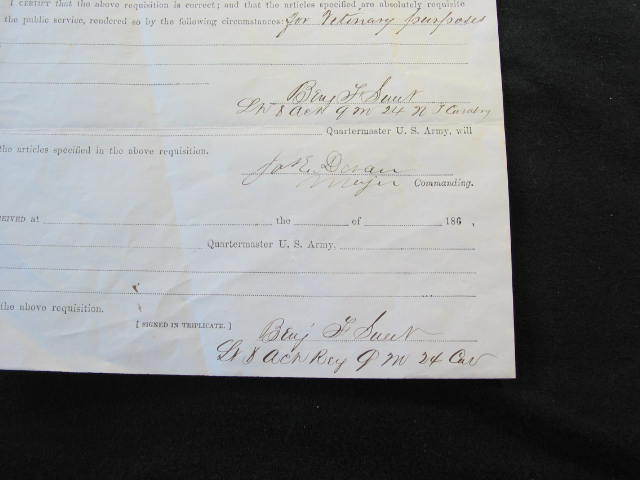 I CERTIFY that the above requisition is correct; and that the articles specified are absolutely requisite
the public service, rendered so by the following circumstances: for Vetinary purposes
Benj F Sweet
Lt & Act Q M 24 N Y Cavalry
Quartermaster U. S. Army, will
the articles specified in the above requisition.
Major Commanding.
at the of 186 ,
Quartermaster U. S. Army,
the above requisition.
[SIGNED IN TRIPLICATE.]
Benj F Sweet
Lt & Act Reg Q M 24 Cav